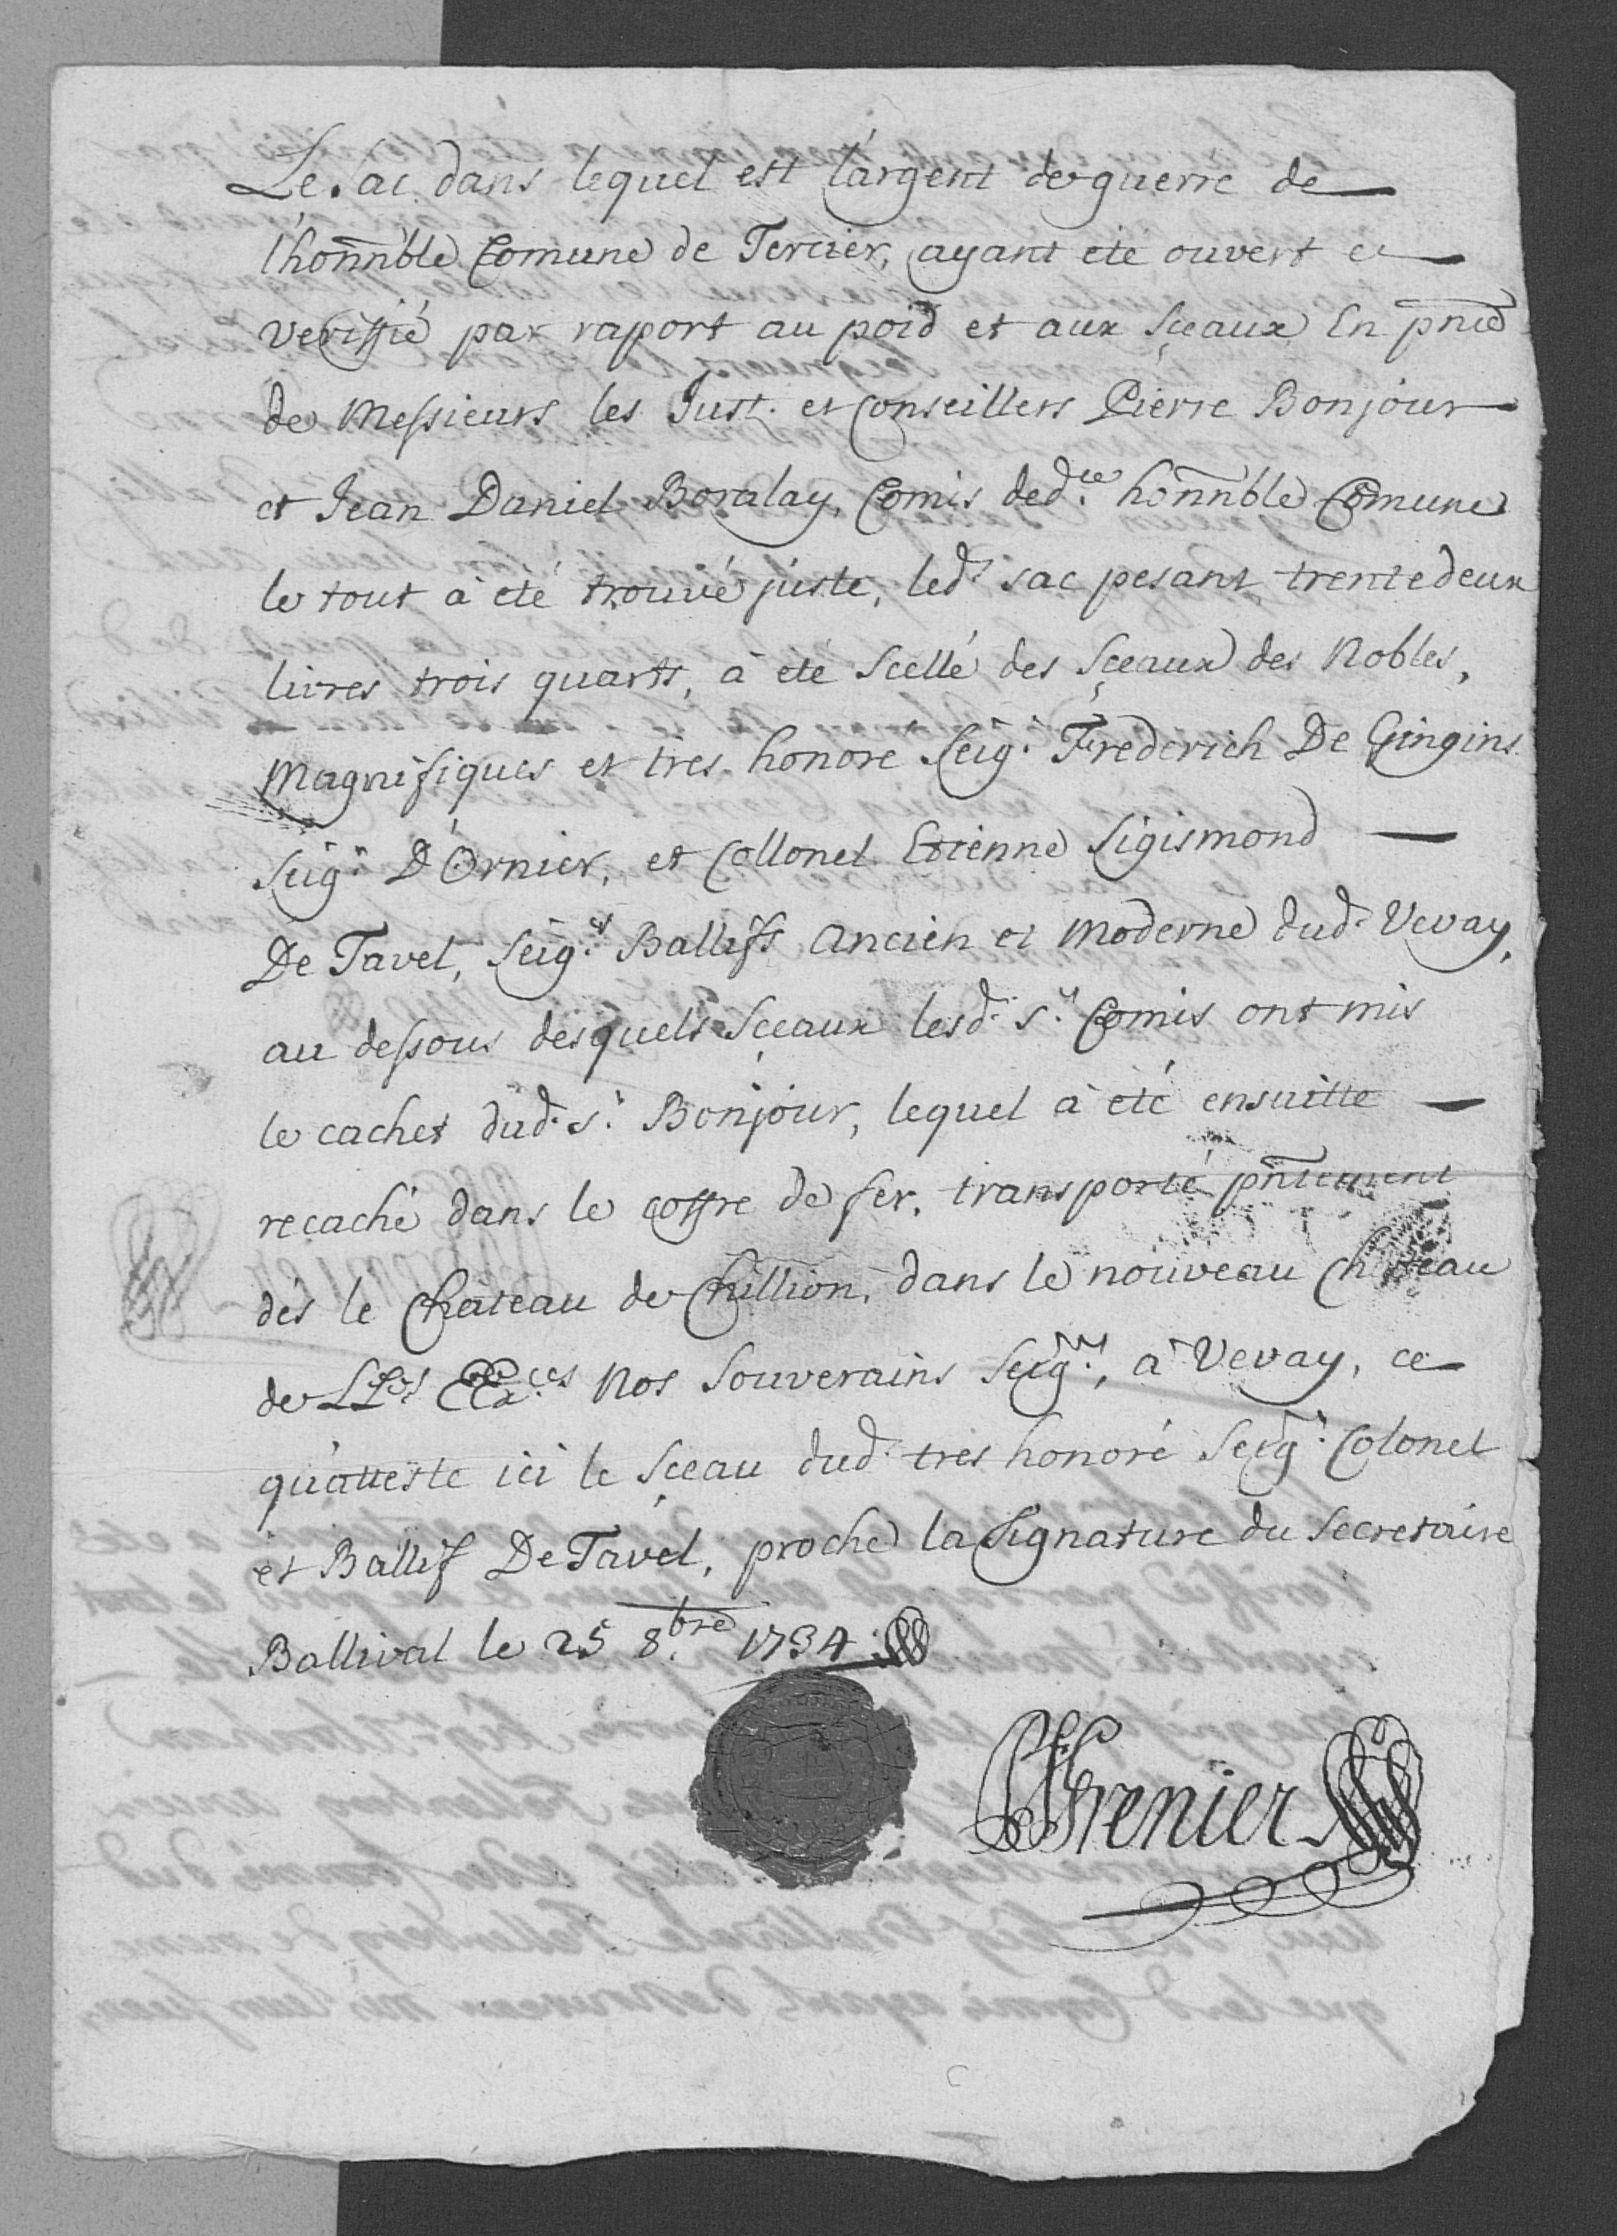 Le Sac dans lequel est l'argent de guerre de
l'honnble Comune de Tercier, ayant eté ouvert et
veriffié par raport au poid et aux Sceaux En pnce
de Messieurs les Just. et Conseillers Pierre Bonjour
et Jean Daniel Boralay, Comis dedce. honnble Comune
le tout à eté trouvé juste, led. sac pesant trentedeux
livres trois quarts, à eté Scellé des Sceaux des Nobles,
Magnifiques et tres honoré Seigr. Frederich De Gingins
Seigr. D'Ornier, et Collonel Etienne Sigismond
De Tavel, Seigrs. Ballifs Ancien et Moderne dud. Vevay,
au dessous desquels Sceaux lesd. Srs. Comis ont mis
le cachet dud. Sr. Bonjour, lequel à eté ensuitte
recaché dans le coffre de fer, transporté pntement
dès le Château de Chillion, dans le nouveau Château
de LLrs EExces Nos Souverains Seigrs., à Vevay, ce
qu'atteste ici le Sceau dud. tres honoré Seigr. Colonel
et Ballif De Tavel, proche la Signature du Secretaire
Ballival le 25 8.bre 1734.
Grenier